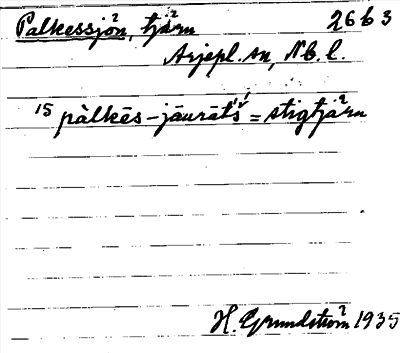 Palkessjön, tjärn 26b3
Arjepl. sn, Nb. l.
15 pàlkēs-jāurāt́s̀ = stigtjärn
H. Grundström 1935